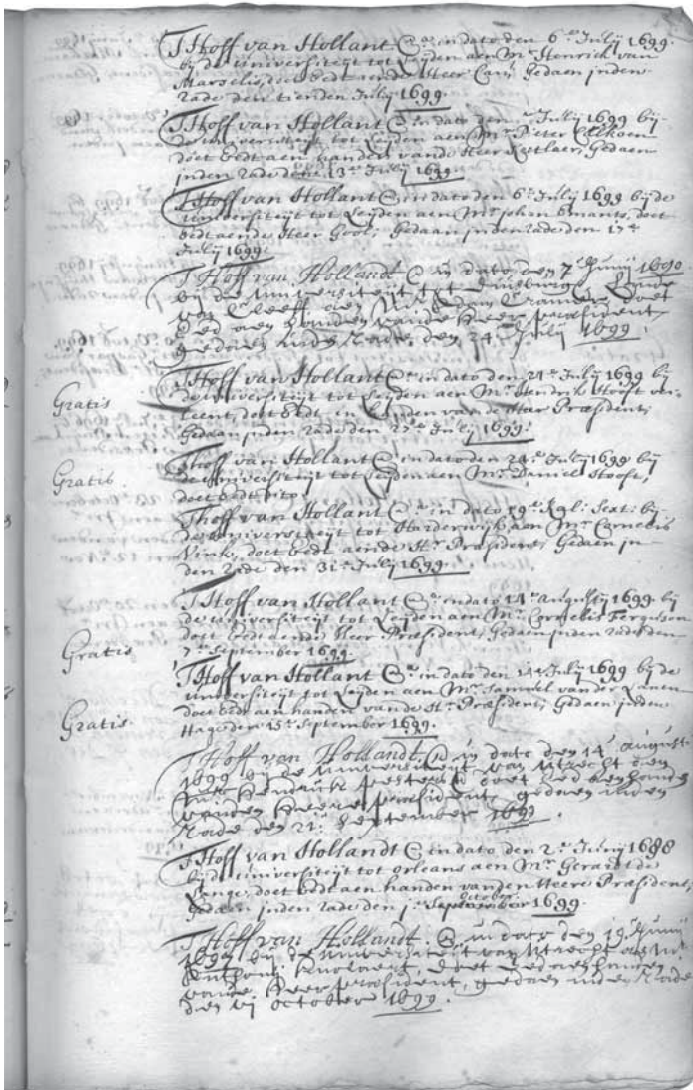 T Hoff van Hollant &a in dato den 6e July 1699
by de universiteyt tot Leyden aen Mr Henrick van
Marselis, doet eedt aende Heer Gedaen inden
rade den tienden July 1699.
T Hoff van Hollant &a in dato den July 1699 by
de universiteyt tot Leyden aen Mr Pieter
doet eedt aen handen vande Heer Gedaen
inden rade den 13e July 1699
T Hoff van Hollant &a in dato den 6e July 1699 by de
universiteyt tot Leyden aen Mr Johan doet
eedt aende Heer Gool, Gedaen inden rade den 17e
July 1699.
T Hoff van Hollandt &a in dato den 7e Juny 1690
by de Universiteijt tot Duisburg
van Cleeff aen Mr Cramer, doet
Eed aen handen vande Heer president
gedaen inden Rade, den 24e July 1699.
T Hoff van Hollant &a in dato den 21e July 1699 by
Gratis
de universiteyt tot Leyden aen Mr Hendrik Hooft
doet eedt in handen van de Heer Præsident,
Gedaen inden rade den July 1699.
T Hoff van Hollant &a in dato den July 1699 by
Gratis.
de universiteyt tot Leyden aen Mr Daniel Hooft,
doet eedt
T Hoff van Hollant &a in dato by
de universiteyt tot Harderwijk aen Mr Cornelis
Vink, doet eedt aende Hr Præsident, Gedaen in
den rade den 31e July 1699.
T Hoff van Hollant &a in dato augusty 1699 by
de universiteyt tot Leyden aen Mr Cornelis Ferguson
doet eedt aende Heer Præsident, Gedaen inden rade den
Gratis
7e September 1699.
T Hoff van Hollant &a in dato den July 1699 by de
universiteyt tot Leyden aen Mr Samuel vander Lanen
Gratis
doet eedt aen handen vande Hr Præsident, Gedaen inden
Hage den 15e September 1699.
T Hoff van Hollandt, &a in dato den 14e augusti
1699 by de Universiteit van Utrecht aen
Mr Hendrick Pesters doet eed aen handen
vanden Heere president gedaen inden
Rade den 21e September 1699.
T Hoff van Hollandt &a in dato den 2e Juny 1688
by de universiteyt tot Orleans aen Mr Gerardt de
Lange, doet eedt aen handen vanden Heere Præsident,
October
Gedaen inden rade den 1e September 1699.
T Hoff van Hollandt. &a in dato den 19e Juny
by de Universiteit van Utrecht aen Mr
Anthony doet eed aen handen
vande Heer president, gedaen inden Rade
den vi October 1699.